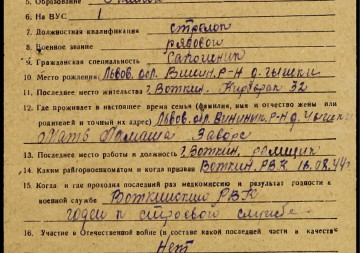 5. Образование
6. На ВУС 1
7. Должностная квалификация стрелок
8. Военное звание рядовой
9. Гражданская специальность Сапожник
10. Место рождения Львов. обл. Винник. р-н д. Чышки
11. Последнее место жительства г. Воткин, 32
12. Где проживает в настоящее время семья (фамилия, имя и отчество жены или
родителей и точный их адрес) Львов. обл. Винник. р-н д. Чышки
Мать
13. Последнее место работы и должность г. Воткин,
14. Каким райгорвоенкоматом и когда призван Воткин. РВК 16.08.44 г
15. Когда и где проходил последний раз медкомиссию и результат годности к
военной службе Воткинский РВК
годен к строевой службе
16. Участие в Отечественной войне (в составе какой последней части и в качеств
Нет